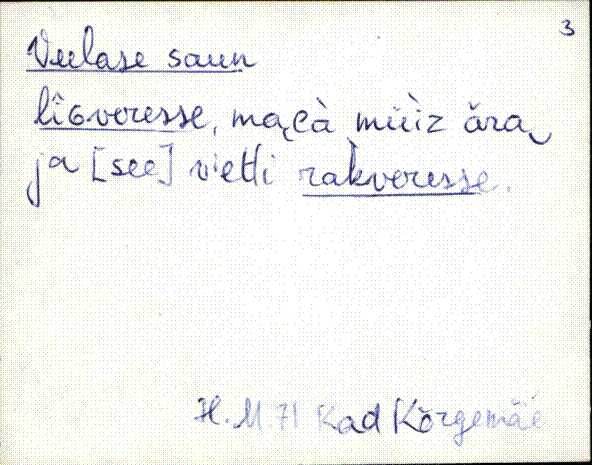 3
Veelase saun
lìɢveresse, maɢà müìz ăra
ja [see] vietti ràkveresse.
H. M. 71 Kad Kõrgemäe